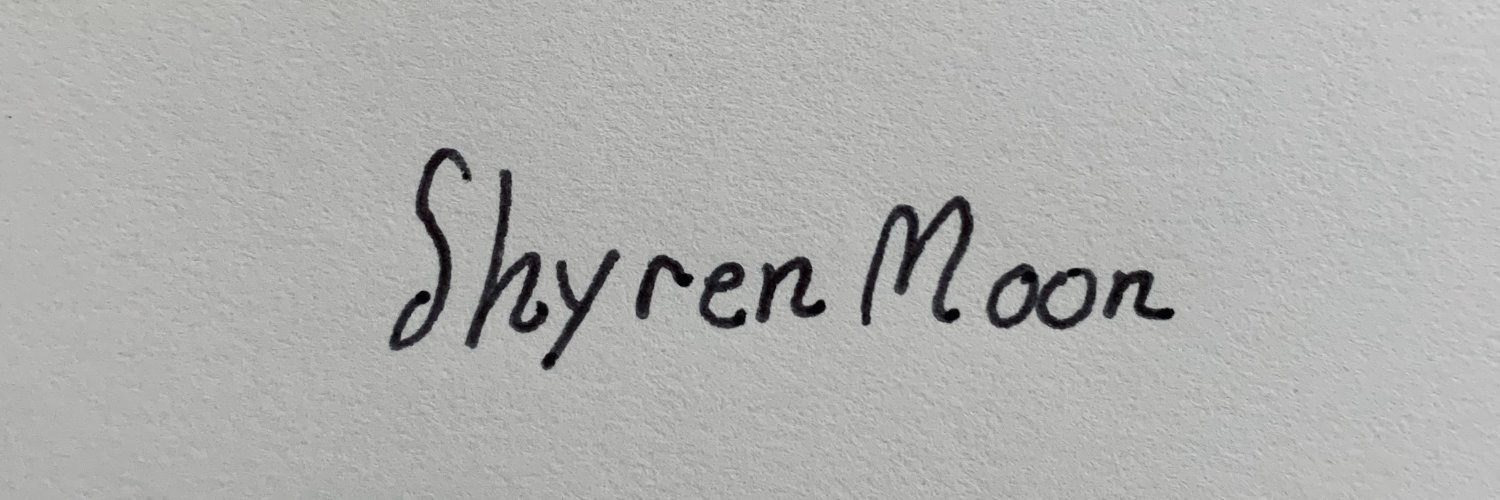 Shyren Moon